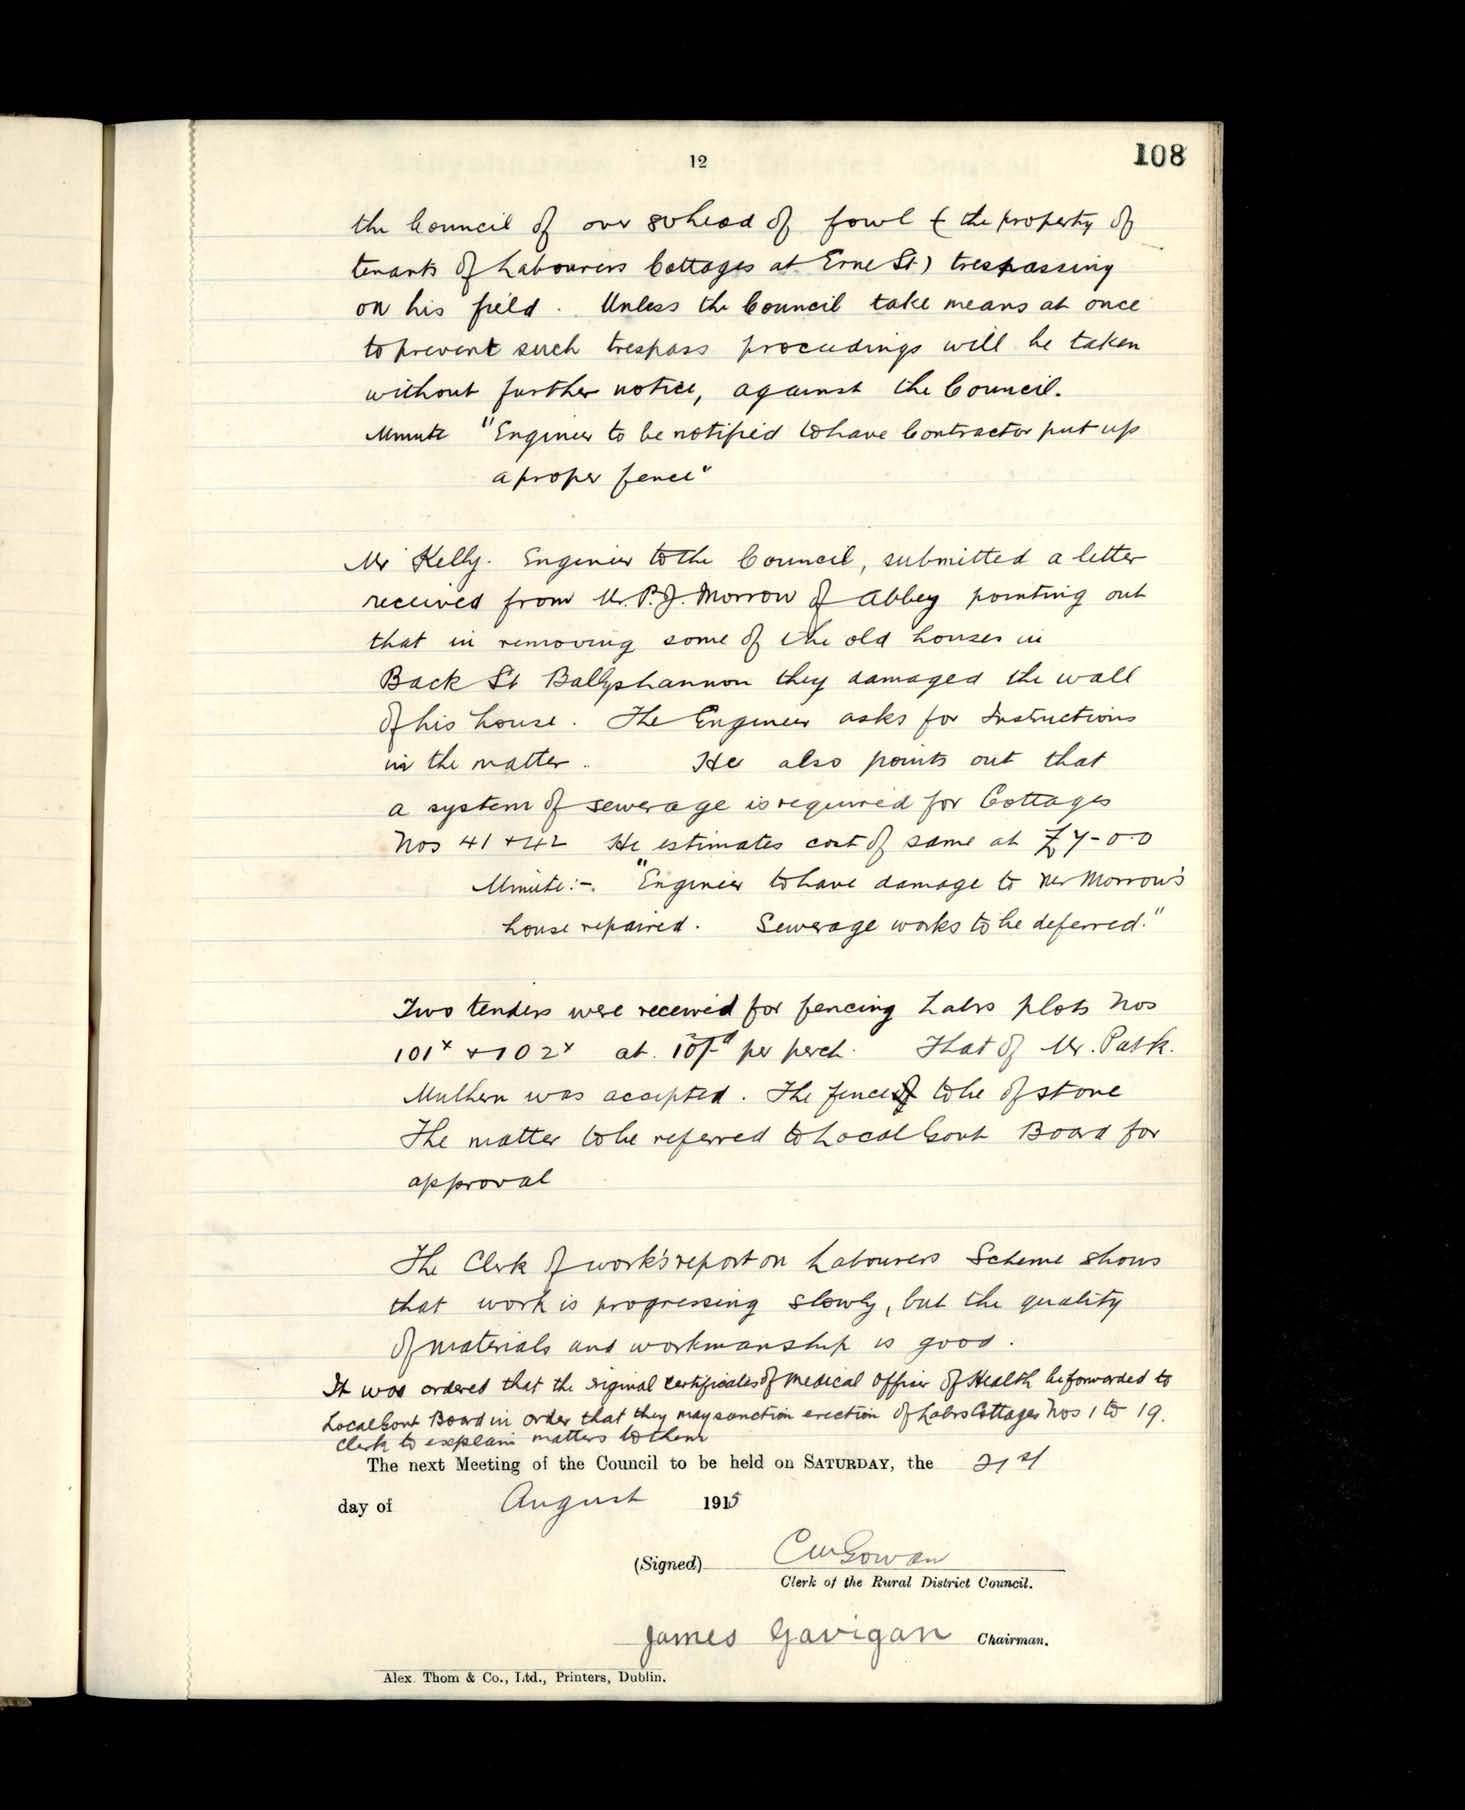 12
108
the Council of over 80 head of fowl ( the property of
tenants of Labourers Cottages at Erne St ) trespassing
on his field . Unless the Council take means at once
to prevent such trespass proceedings will be taken
without further notice, against the Council.
Minute "Engineer to be notified to have Contractor put up
a proper fence"
Mr Kelly. Engineer to the Council, submitted a letter
received from Mr. P.J. Morrow of Abbey pointing out
that in removing some of the old houses in
Back St Ballyshannon they damaged the wall
of his house . The Engineer asks for Instructions
in the matter . He also points out that
a system of sewerage is required for Cottages
Nos 41 + 42 He estimates cost of same at £7-0-0
Minute:-. "Engineer to have damage to Mr Morrow's
house repaired. Sewerage works to be deferred."
Two tenders were received for fencing Labrs plots Nos
101x + 102x at per perch. That of Mr. Patk.
Mulhern was accepted. The fences to be of stone
The matter to be referred to Local Govt Board for
approval
The Clerk of work's report on Labourers Scheme shows
that work is progressing slowly, but the quality
of materials and workmanship is good .
It was ordered that the original certificates of Medical Officer of Health be forwarded to
Local Govt Board in order that they may sanction erection of Labrs Cottages Nos 1 to 19.
Clerk to explain matters to them
The next Meeting of the Council to be held on SATURDAY, the 21st
day of August 1915
(Signed) CMcGowan
Clerk of the Rural District Council.
James Gavigan Chairman.
Alex. Thom & Co., Ltd., Printers, Dublin.